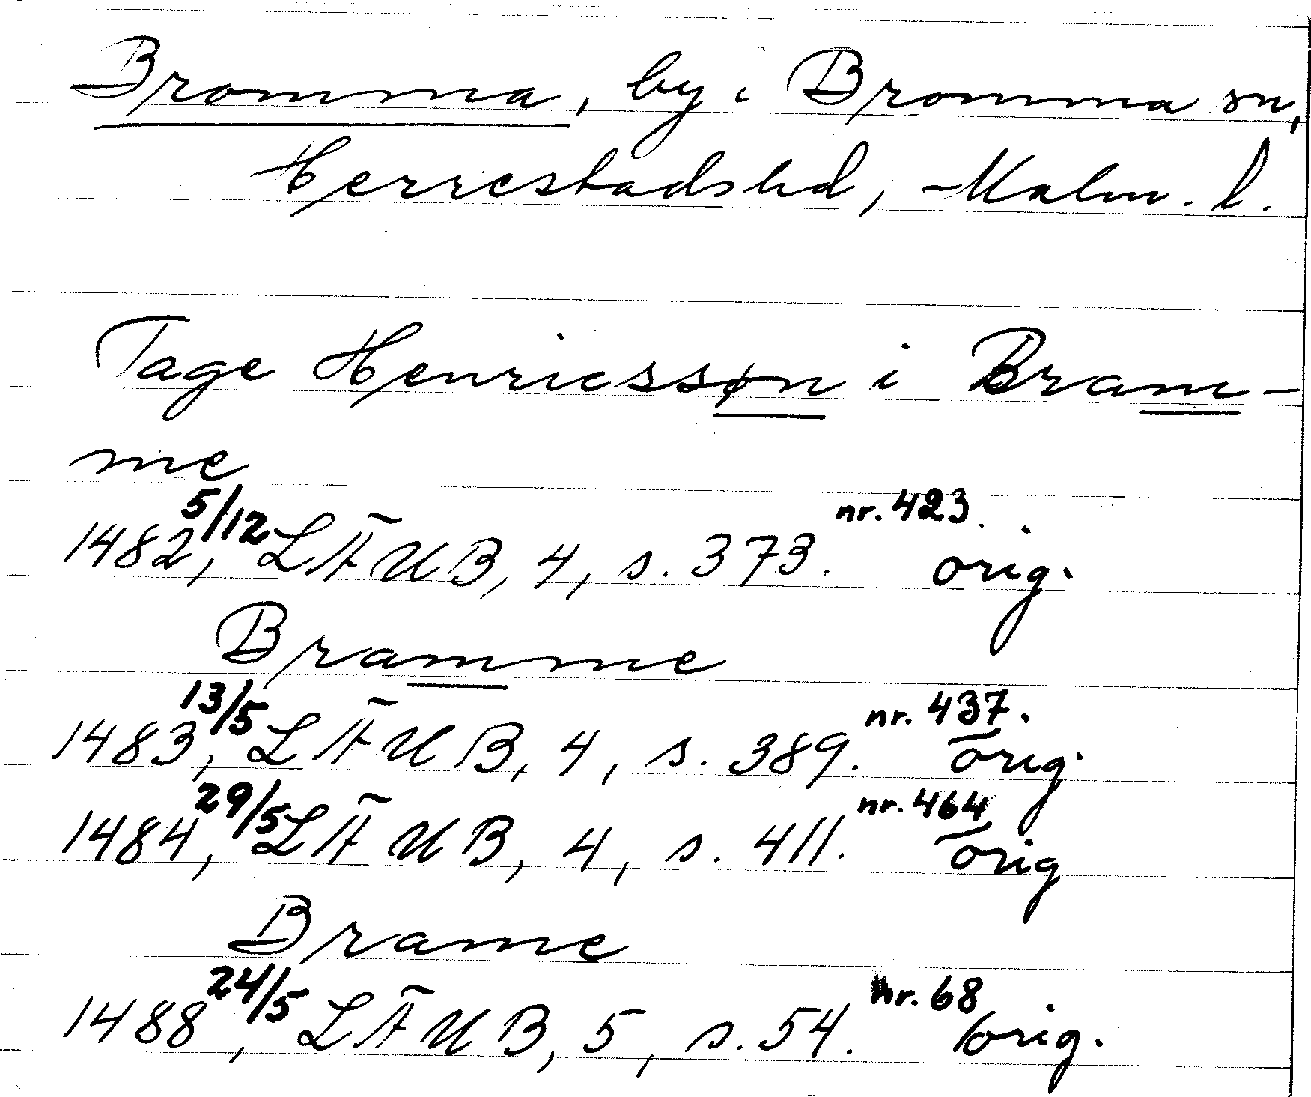 Bromma, by i Bromma sn,
Herrestads hd, Malm. l.
Tage Henricssøn i Bram-
me
1482 5/12, LÄUB, 4, s. 373. nr. 423. orig.
Bramme
1483 13/5, LÄUB, 4, s. 389. nr. 437. orig.
1484 29/5, LÄUB, 4, s. 411. nr. 464 orig
Brame
1488 24/5, LÄUB, 5, s. 54. nr. 68 orig.